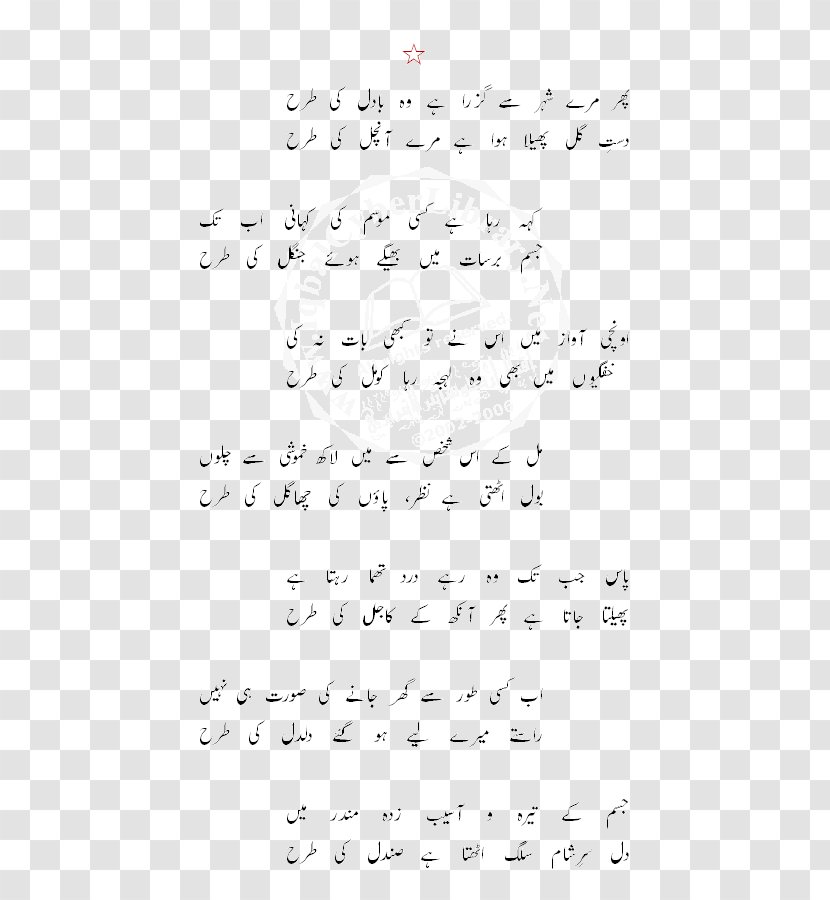 پھر مرے شہر سے گزرا ہے وہ بادل کی طرح
دستِ گل پھیلا ہوا ہے مرے آنچل کی طرح
کہہ رہا ہے کسی موسم کی کہانی اب تک
جسم برسات میں بھیگے ہوئے جنگل کی طرح
اونچی آواز میں اس نے تو کبھی بات نہ کی
خفگیوں میں بھی وہ لہجہ رہا کومل کی طرح
مل کے اس شخص سے میں لاکھ خموشی سے چلوں
بول اٹھتی ہے نظر، پاؤں کی چھاگل کی طرح
پاس جب تک وہ رہے درد تھما رہتا ہے
پھیلتا جاتا ہے پھر آنکھ کے کاجل کی طرح
اب کسی طور سے گھر جانے کی صورت ہی نہیں
راستے میرے لیے ہو گئے دلدل کی طرح
جسم کے تیرہ و آسیب زدہ مندر میں
دل سرِ شام سلگ اٹھتا ہے صندل کی طرح
©2002-2006